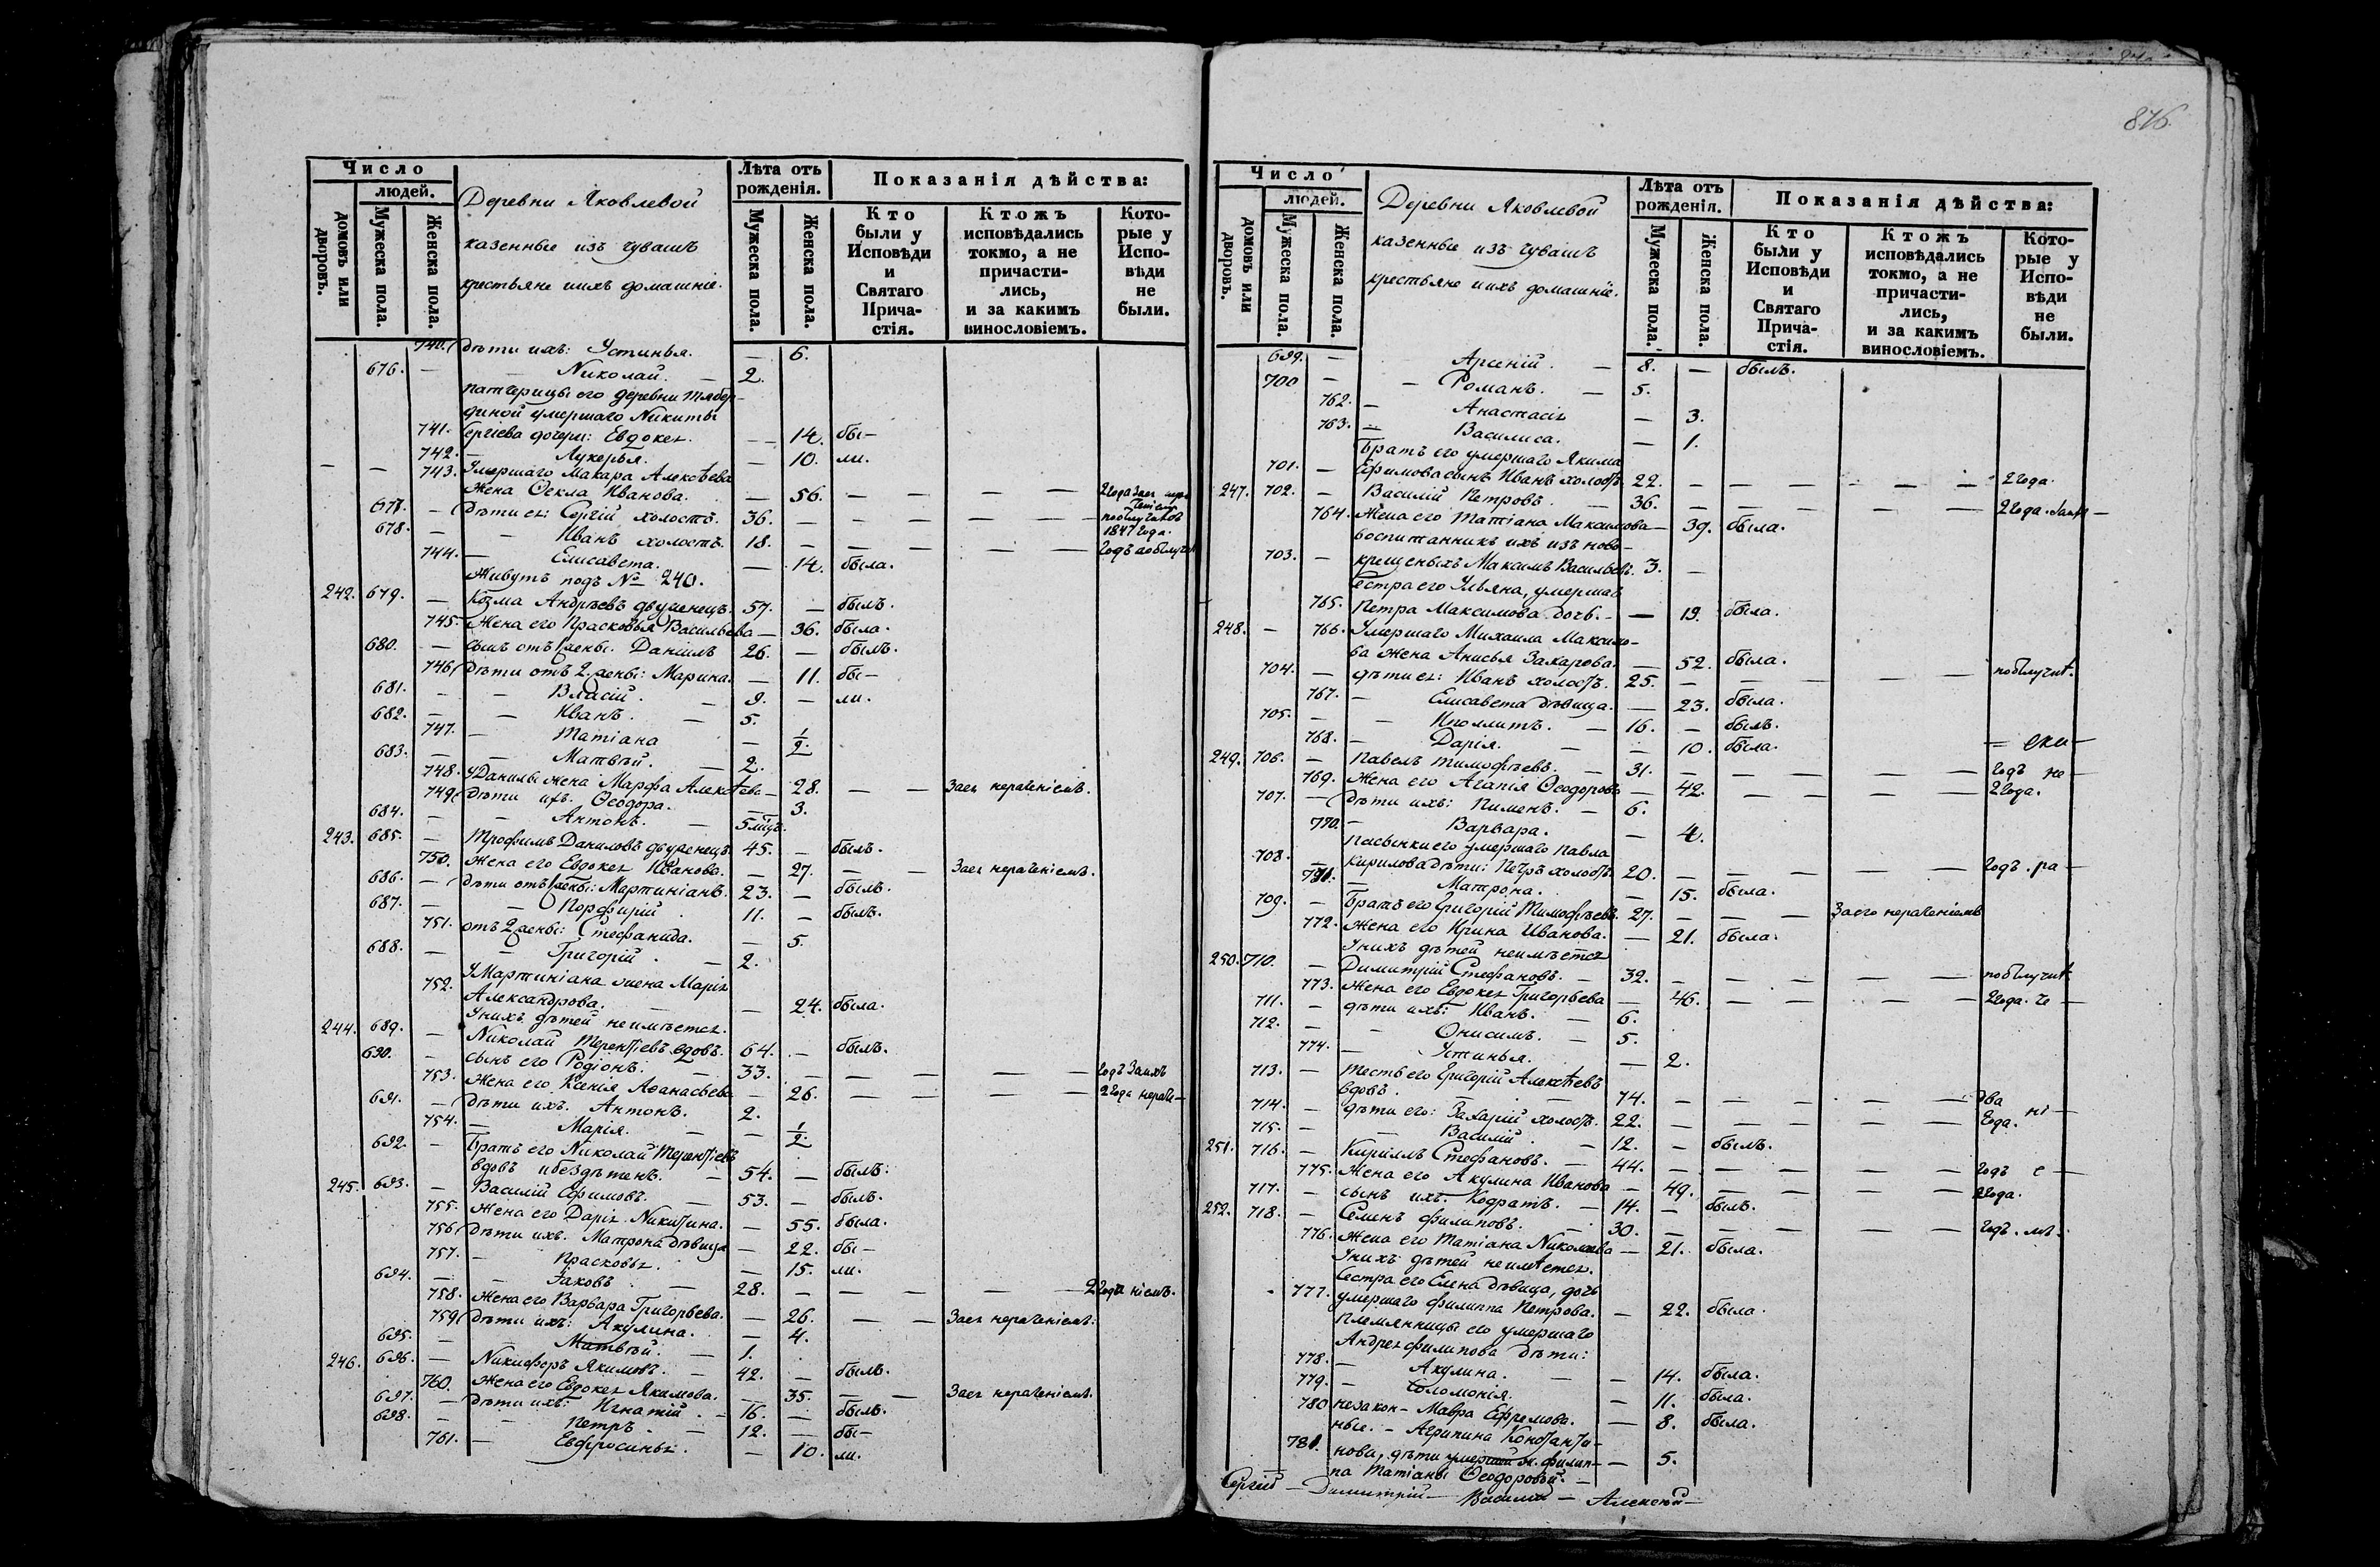 Число
людей.
домовъ или дворовъ.
Мужеска пола.
Женска пола.
Деревни Яковлевой
казенные изъ чувашъ
крестьяне иихъ домашніе.
Лѣта отъ рожденія.
Мужеска пола.
Женска пола.
Показанія дѣйства:
Кто были у Исповѣди и Святаго Прича-стія.
Ктожъ исповѣдались токмо, а не причасти-лись, и за какимъ винословіемъ.
Кото-рые у Испо-вѣди не были.
740. дѣти ихъ: Устинья. — 6.
676. — Николай. — 2.
патчерицы его деревни
диной умершаго Никиты
741. Сергіева дочери: Евдокея. — 14. бы—
742. — Лукерья. — 10. ли.
— — 743. Умершаго Макара Алексѣева
жена Ѳекла Иванова. — 56. — — — — 2 года Заея
677. — Дѣти ея: Сергій холостъ. 36. — — — — —
1847 года.
678. — — Иванъ холостъ. 18. — — — — — годъ
744. — Елисавета. — 14. была.
Живутъ подъ № 240.
242. 679. — Козма Андреевъ двуженецъ. 57. — былъ.
745. Жена его Прасковья Васильева — 36. была.
680. — сынъ отъ 1 жены. Даніилъ 26. — былъ.
746. дѣти отъ 2 жены: Марина. — 11. бы—
681. — — Власій. — 9. — ли.
682. — — Иванъ. — 5.
747. — Татіана — 1/2.
683. — — Матвѣй. — 2.
748. УДанилы жена Марфа Алексѣева — 28. — — Заея нераченіемъ.
749. дѣти ихъ. Ѳеодора. — 3.
684. — — Антонъ. — 5 мѣцъ.
243. 685. — Трофимъ Даниловъ двуженецъ. 45. — былъ.
750. Жена его Евдокея Иванова. — 27. — — Заея нераченіемъ.
686. — дѣти отъ 1 жены: Мартиніанъ. 23. — былъ.
687. — — Порфирій. 11. — былъ.
751. отъ 2 жены: Стефанида. — 5.
688. — — Григорій. — 2.
752. УМартиніана жена Марія
Александрова. — — 24. была.
Унихъ дѣтей неимѣется.
244. 689. — Николай Терентіевъ вдовъ. 64. — былъ.
690. — сынъ его Родіонъ. — 33. — — — — — годъ Заихъ
753. Жена его Ксенія Аѳанасьева — 26. — — — — 2 года нераче—
691. — дѣти ихъ. Антонъ. 2.
754. — Марія. — — 1/2.
692. — Братъ его Николай Терентіевъ
вдовъ ибездѣтенъ. — 54. — былъ.
245. 693. — Василій Ефимовъ. — 53. — былъ.
755. Жена его Дарія Никитина. — 55. была.
756. дѣти ихъ. Матрона дѣвица — 22. бы—
757. — Прасковья. — 15. ли.
694. — — Іаковъ — 28. — — — — — 2 года ніемъ.
758. Жена его Варвара Григорьева. — 26. — — Заея нераченіемъ.
759. дѣти ихъ: Акулина. — 4.
695. — — Матвѣй. — 1.
246. 696. — Никифоръ Якимовъ. — 42. — былъ.
760. Жена его Евдокея Якимова. — 35. — — Заея нераченіемъ.
697. — дѣти ихъ: Игнатій. — 16. — былъ.
698. — — Петръ. — 12. — бы—
761. — Евфросинья. — 10. ли.
846.
Число
людей.
домовъ или дворовъ.
Мужеска пола.
Женска пола.
Деревни Яковлевой
казенные изъ чувашъ
крестьяне иихъ домашніе.
Лѣта отъ рожденія.
Мужеска пола.
Женска пола.
Показанія дѣйства:
Кто были у Исповѣди и Святаго Прича-стія.
Ктожъ исповѣдались токмо, а не причасти-лись, и за какимъ винословіемъ.
Кото-рые у Испо-вѣди не были.
699. — Арсеній. — 8. — былъ.
700 — — Романъ. — 5.
762. — Анастасія — 3.
763. — Василиса. — 1.
Братъ его умершаго Якима
701. — Ефимова сынъ Иванъ холостъ 22. — — — — — 2 года.
247. 702. — Василій Петровъ. — 36. — — — — — 2 года.
764. Жена его Татіана Максимова — 39. была.
воспитанникъ ихъ изъ ново—
703. — крещеныхъ Максимъ Васильевъ. 3. —
Сестра его Ульяна, умершаго
765. Петра Максимова дочь. — — 19. была.
248. — 766. Умершаго Михаила Максимо—
ва жена Анисья Захарова. — 52. была.
704. — дѣти ея: Иванъ холостъ. 25. — — — — —
767. — Елисавета дѣвица. — 23. была.
705. — — Иполлитъ. — 16. — былъ.
768. — Дарія. — — 10. была.
249. 706. — Павелъ Тимофѣевъ. — 31. — — — — — годъ не—
769. Жена его Агапія Ѳеодорова — 42. — — — — 2 года.
707. — дѣти ихъ: Пименъ. — 6.
770. — Варвара. — 4.
Пасынки его умершаго Павла
708. — Кирилова дѣти: Петръ холостъ. 20. — — — — — годъ. ра—
771. — Матрона. — 15. была.
709. — Братъ его Григорій Тимофѣевъ. 27. — — — Заего нераченіемъ
772. Жена его Ирина Иванова. — 21. была.
Унихъ дѣтей неимѣется
250. 710. — Димитрій Стефановъ. — 32. — — — — —
773. Жена его Евдокея Григорьева — 46. — — — — 2 года. че—
711. — дѣти ихъ: Иванъ. — 6.
712. — — Онисимъ. — 5.
774. — Устинья. — 2.
713. — Тесть его Григорій Алексѣевъ
вдовъ. — — 74. — — — — — два
714. — дѣти его: Захарій холостъ. 22. — — — — — года. ні—
715. — — Василій. — 12. — былъ.
251. 716. — Кириллъ Стефановъ. — 44. — — — — — годъ е—
775. Жена его Акулина Иванова — 49. — — — — 2 года.
717. — сынъ ихъ. Кодратъ. — 14. — былъ.
252. 718. — Семенъ Филиповъ. — 30. — — — — — годъ. мъ.—
776. Жена его Татіана Николаева — 21. была.
Унихъ дѣтей неимѣется.
Сестра его Елена дѣвица, дочь
777. умершаго Филиппа Петрова. — 22. была.
Племянницы его умершаго
Андрея Филипова дѣти:
778. — Акулина. — — 14. была.
779. — Соломонія. — 11. была.
780 незакон— Мавра Ефремова. — 8. была.
ные. — Агрипина Константи—
781. нова, дѣти умершей Филип— — 5.
па Татіаны Ѳеодоровой. —
Сергій — Димитрій — Василій — Алексѣй —